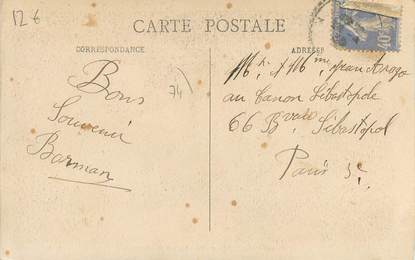 12 €
CARTE POSTALE
CORRESPONDANCE
ADRESSE
40c
74
Bons
Souvenir
Barman
Mr. & Mme Jean Arrozo
au Canon Sébastopole
66 Bvard Sébastopol
Paris 3e